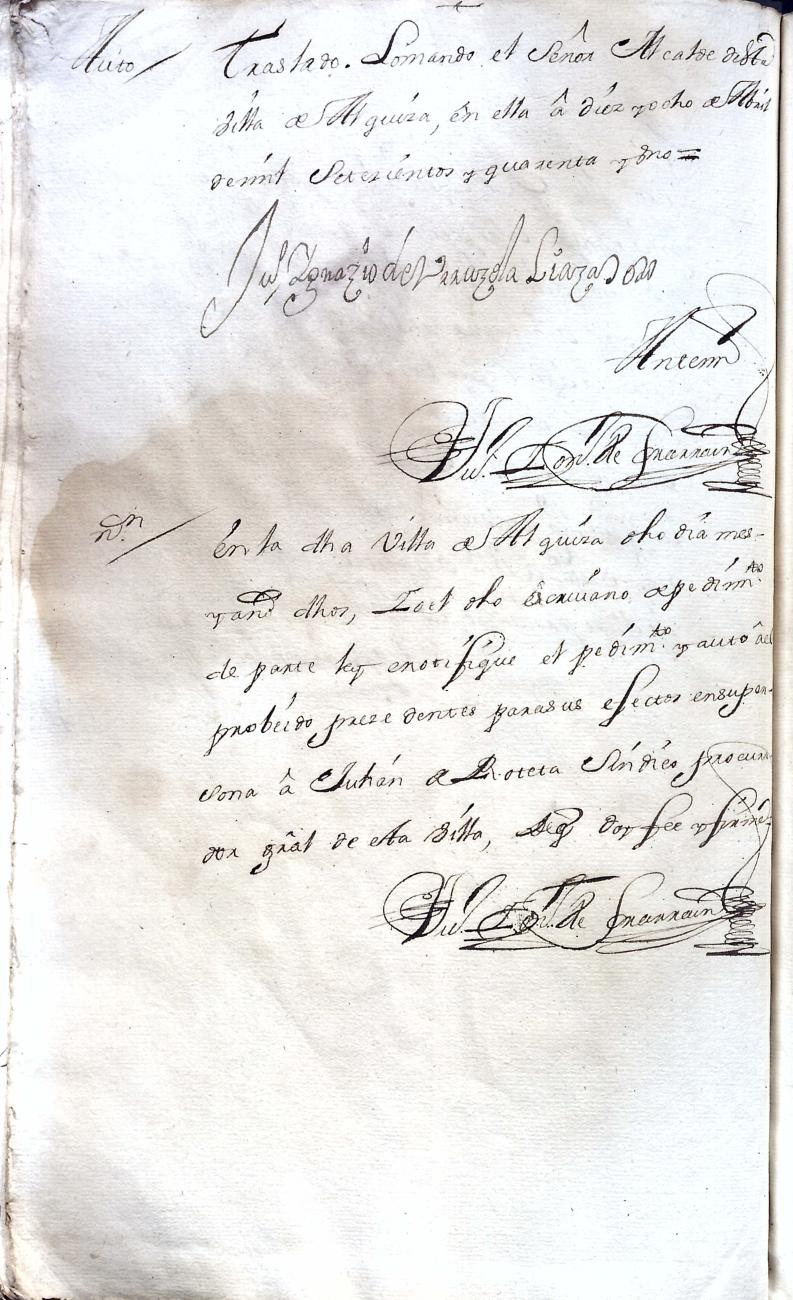 Auto/
Traslado. Lomando el Señor Alcalde desta
Villa de Alquiza, en ella â diez y ocho de Abril
de mil Setezientos y quarenta y dno =
Ignazio de Liazasoro
Antemi
de Ynarrain
Nn/
en la dha Villa de Alquiza dho dia mes
y año dhos, Io el dho escriuano de pedimto
de parte ley enotifique el pedimto y auto âel
probeido prezedentes parasus efectos ensuper-
sona â Juhán de Roteta Sindico procura
dor gral de esta Villa, deq doy fee y firmé
de Ynarrain